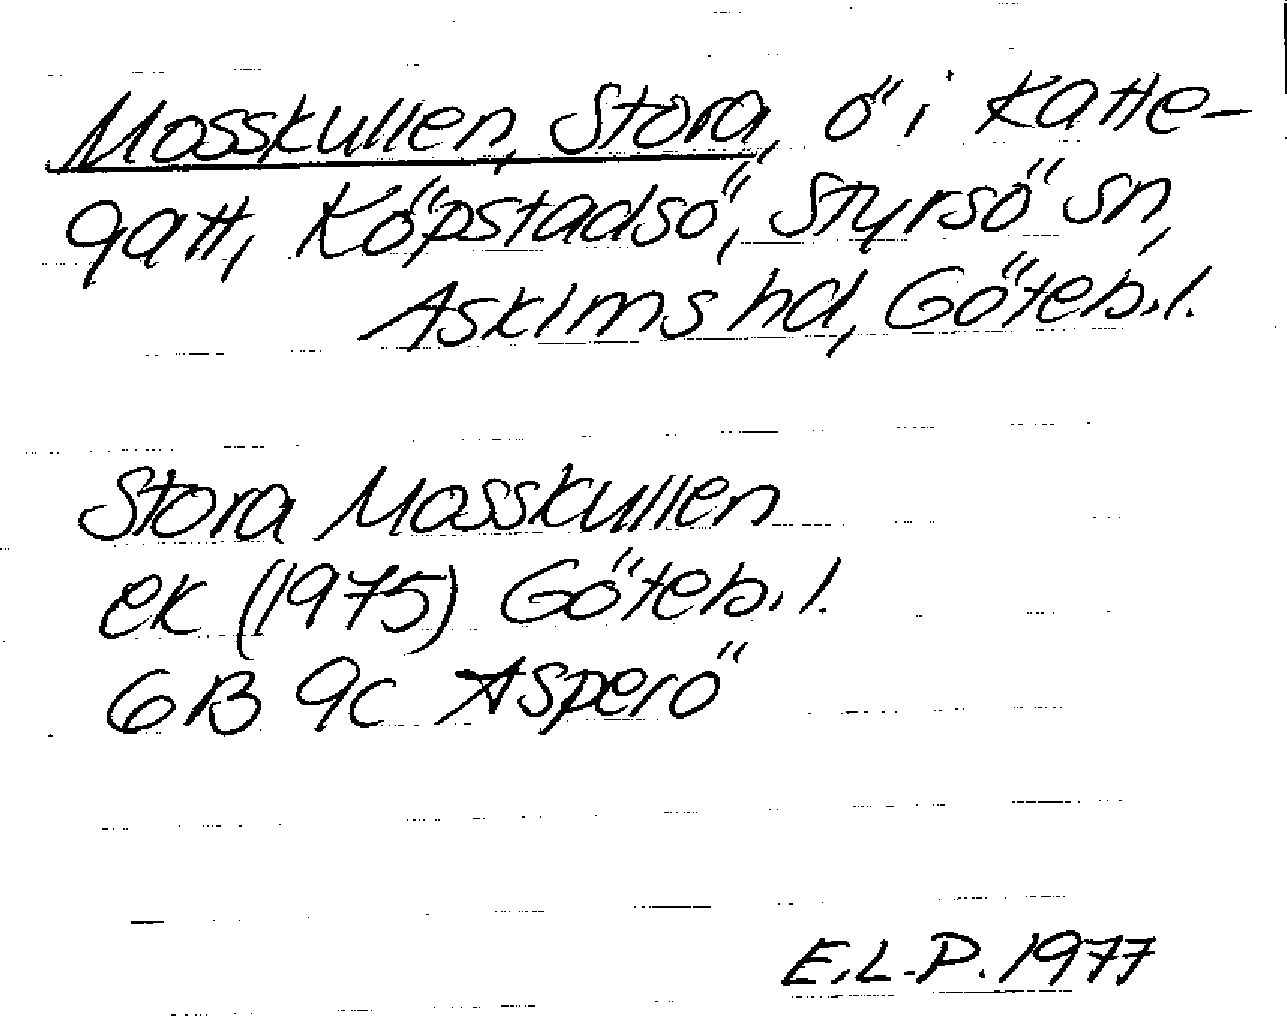 Mosskullen, Stora, ö i Katte-
gatt, Köpstadsö, Styrsö sn,
Askims hd, Göteb.l.
Stora Mosskullen
ek (1975) Göteb.l.
6B 9c Asperö
E.L-P. 1977